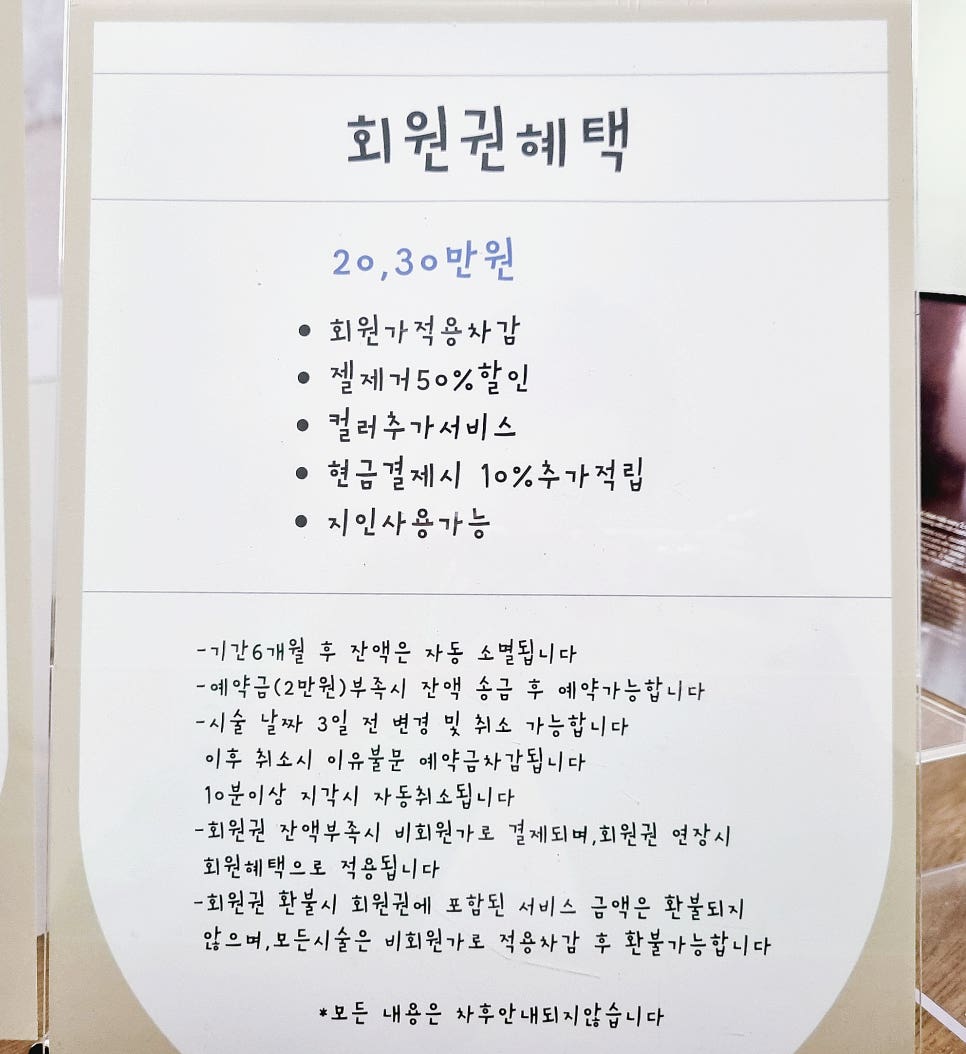 회원권혜택
20,30만원
• 회원가적용차감
• 젤제거50%할인
• 컬러추가서비스
• 현금결제시 10%추가적립
• 지인사용가능
-기간6개월 후 잔액은 자동 소멸됩니다
-예약금(2만원)부족시 잔액 송금 후 예약가능합니다
-시술 날짜 3일 전 변경 및 취소 가능합니다
이후 취소시 이유불문 예약금차감됩니다
10분이상 지각시 자동취소됩니다
-회원권 잔액부족시 비회원가로 결제되며,회원권 연장시
회원혜택으로 적용됩니다
-회원권 환불시 회원권에 포함된 서비스 금액은 환불되지
않으며,모든시술은 비회원가로 적용차감 후 환불가능합니다
*모든 내용은 차후안내되지않습니다